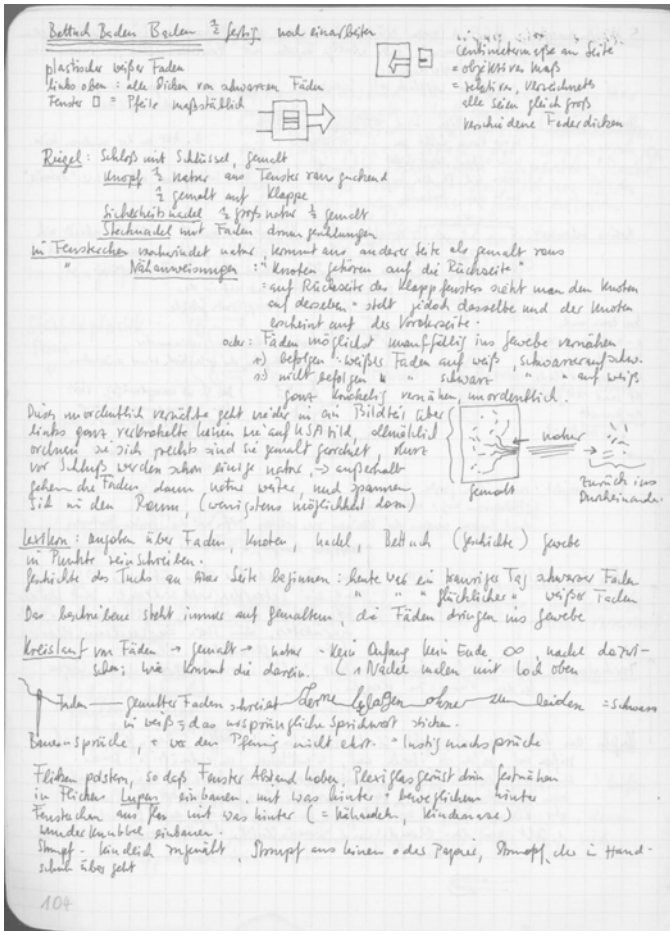 Bettuch Baden Baden ½ fertig noch einarbeiten
plastischer weißer Faden
links oben: alle Dicken von schwarzen Fäden
Fenster □ = Pfeile maßstäblich
Centimetermaße an Seite
= objektives Maß
= relatives, verzeichnetes
alle seien gleich groß
verschiedene Federdicken
Riegel: Schloß mit Schlüssel, gemalt
Knopf ½ natur aus Fenster raus guckend
½ gemalt auf Klappe
Sicherheitsnadel ½ groß natur ½ gemalt
Stecknadel mit Faden
im Fensterchen verschwindet natur, kommt aus anderer Seite als gemalt raus
" Nähanweisungen: "Knoten gehören auf die Rückseite"
= auf Rückseite des Klappfensters sieht man den Knoten
auf derselben " steht jedoch dasselbe und der Knoten
erscheint auf der Vorderseite.
oder: Fäden möglichst unauffällig ins Gewebe vernähen
1) befolgen: weißer Faden auf weiß, schwarzer auf schw.
2) nicht befolgen " " schwarz " " auf weiß
ganz vernähen, unordentlich.
Dieses unordentlich vernähte geht wieder in ein Bildteil über
links ganz wie auf , allmählich
ordnen sie sich, rechts sind sie gemalt geordnet, kurz
vor Schluß werden schon einige natur, → außerhalb
gehen die Fäden dann natur weiter, und spannen
sich in den Raum, (wenigstens Möglichkeit dazu)
gemalt
natur
zurück ins
Durcheinander.
Lexikon: angaben über Faden, Knoten, Nadel, Bettuch (Geschichte) Gewebe
in Punkte reinschreiben.
Geschichte des Tuchs an einer Seite beginnen: heute war ein trauriger Tag schwarzer Faden
" " " glücklicher " weißer Faden
Das beschriebene steht immer auf gemaltem, die Fäden dringen ins Gewebe
Kreislauf von Fäden → gemalt → natur - kein Anfang kein Ende ∞, Nadel dazwi-
schen; wie kommt die darein. (1 Nadel malen mit Loch oben
Faden — gemalter Faden schreibt Lerne klagen ohne zu leiden = schwarz
in weiß = das ursprüngliche Sprichwort sticken.
Bauernsprüche, + wer den Pfennig nicht ehrt. " lustig machsprüche
Flicken polstern, so daß Fenster Abstand haben Plexiglasgerüst drin festnähen
in Flicken Lupen einbauen, mit was hinter " beweglichem hinter
Fensterchen aus Glas mit was hinter
einbauen.
Strumpf - kindlich zugenäht, Strumpf aus Leinen oder Papier, Strumpf, der in Hand-
schuh über geht
104